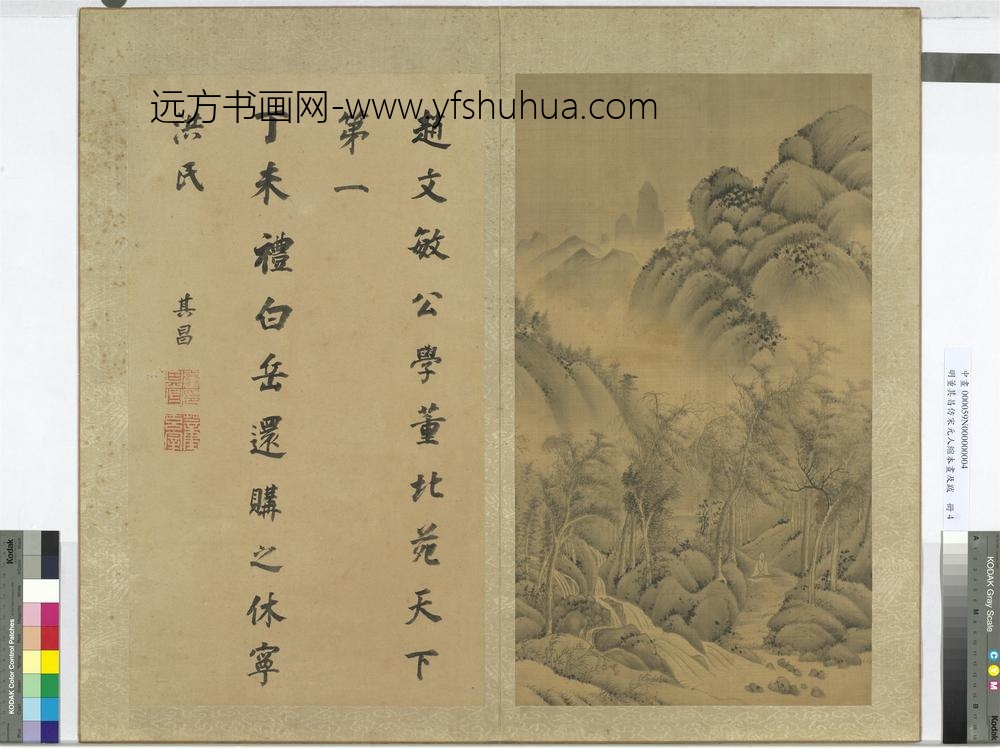 远方书画网-www.yfshuhua.com
趙文敏公學董北苑天下
第一
丁未禮白岳還購之休寧
洪氏
其昌
中畫000059N000000004
明董其昌仿宋元人縮本畫及跋 冊 4
Kodak
KODAK Color Control Patches
KODAK Gray Scale
C Y M
Kodak
A
M
B